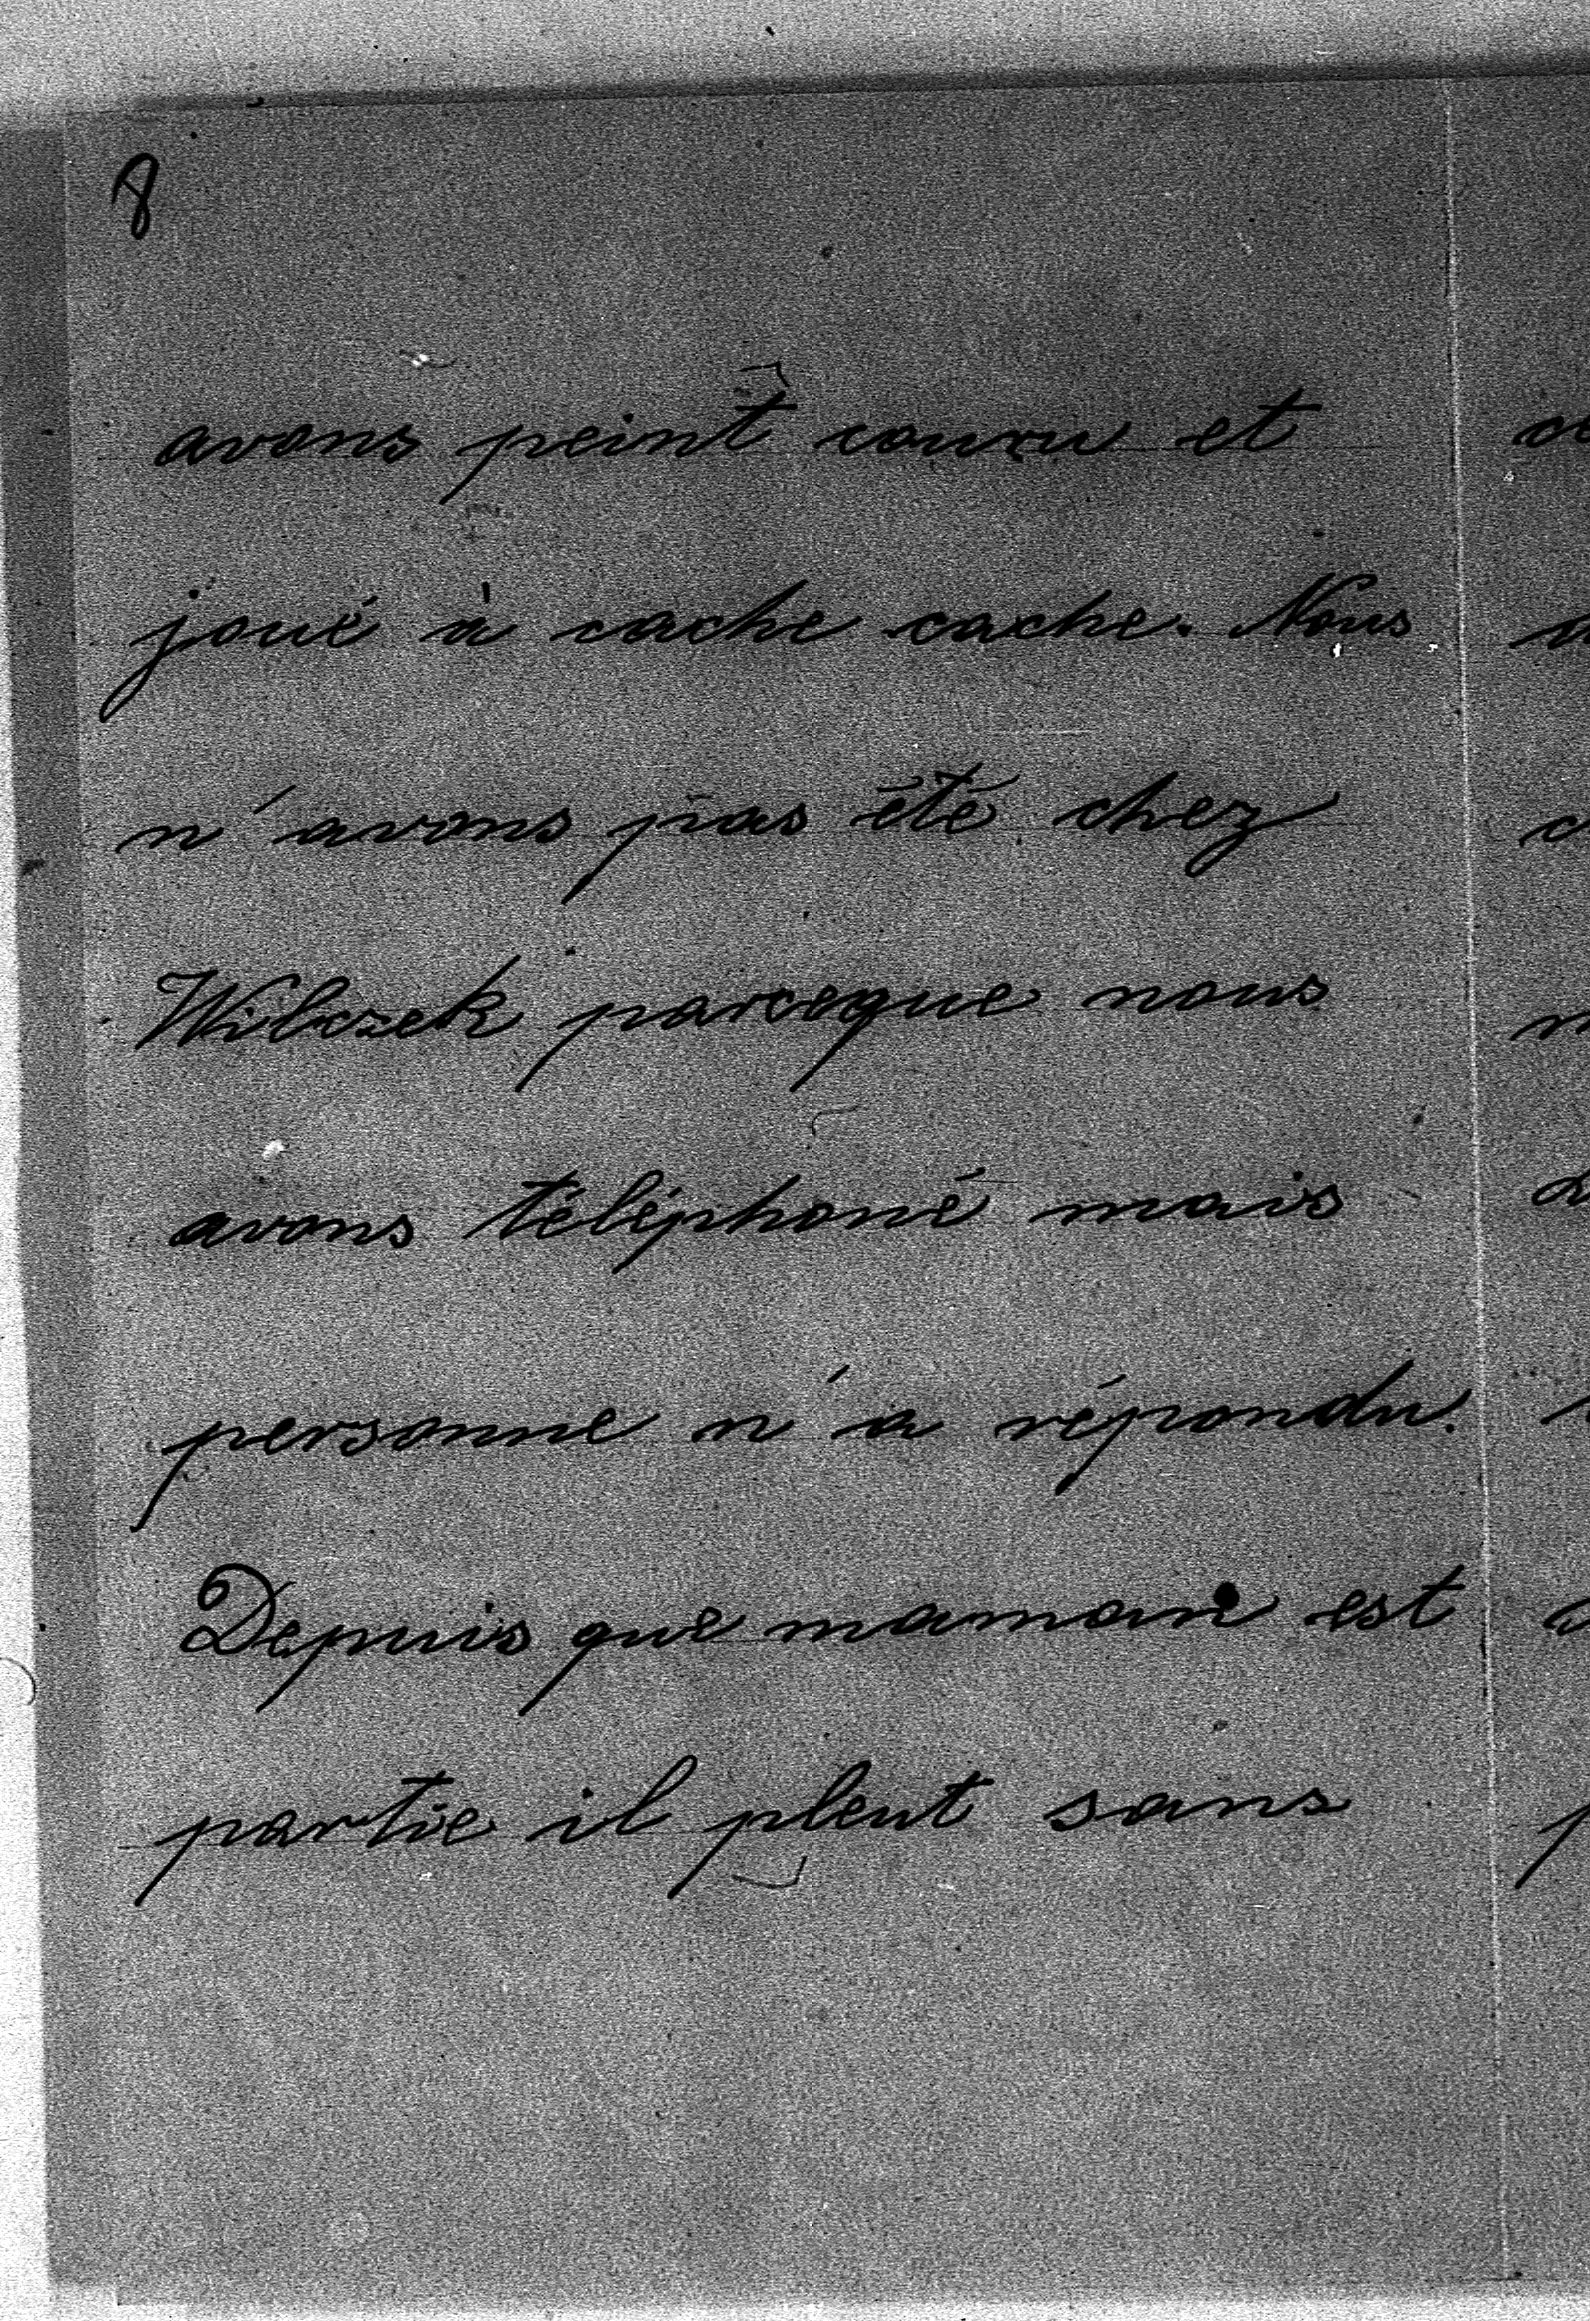 8
avons peint couru et
joué à cache cache. Nous
n'avons pas été chez
Wilczek parceque nous
avons téléphoné mais
personne n'a répondu.
Depuis que maman est
partie il pleut sans